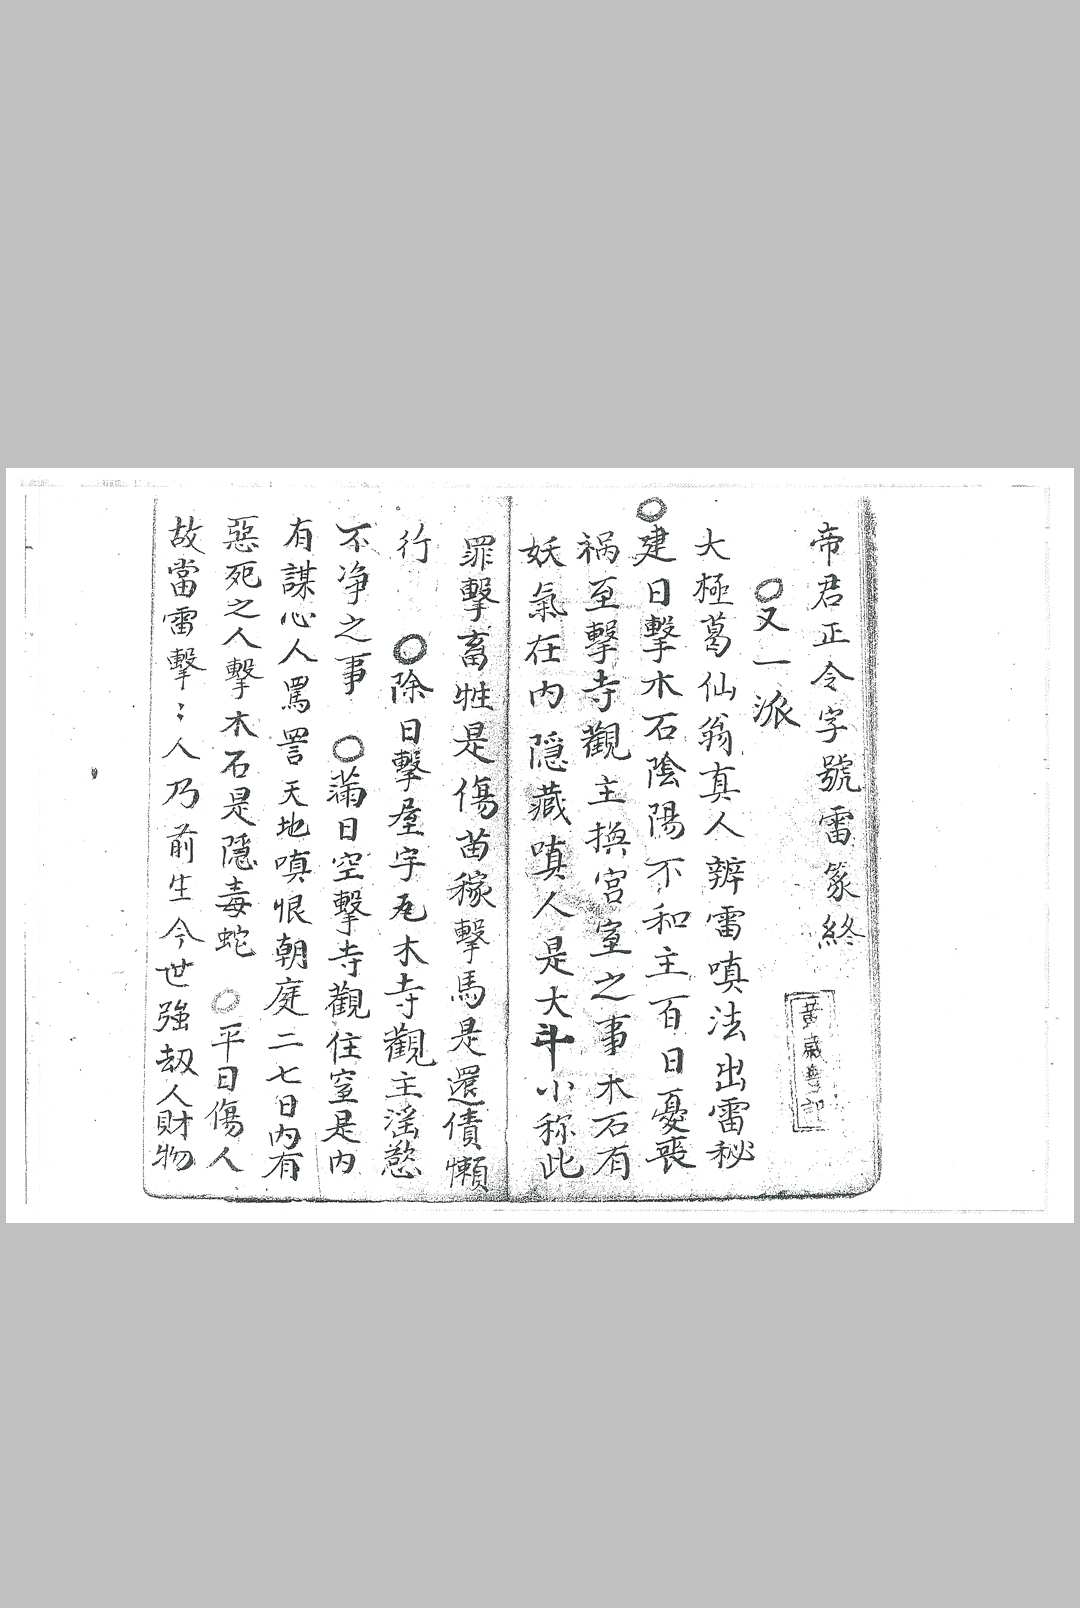 帝君正令字號雷篆終
○又一派
大極葛仙翁真人辨雷嗔法出雷秘
○建日擊木石陰陽不和主百日憂喪
禍至擊寺觀主換宮室之事木石有
妖氣在内隱藏嗔人是大斗小称此
罪擊畜牲是傷苗稼擊馬是還債懶
行 ○除日擊屋宇瓦木寺觀主滛慾
不净之事 ○滿日空擊寺觀住室是内
有謀心人罵詈天地嗔恨朝庭二七日内有
惡死之人擊木石是隱毒蛇 ○平日傷人
故當雷擊:人乃前生今世強刼人財物